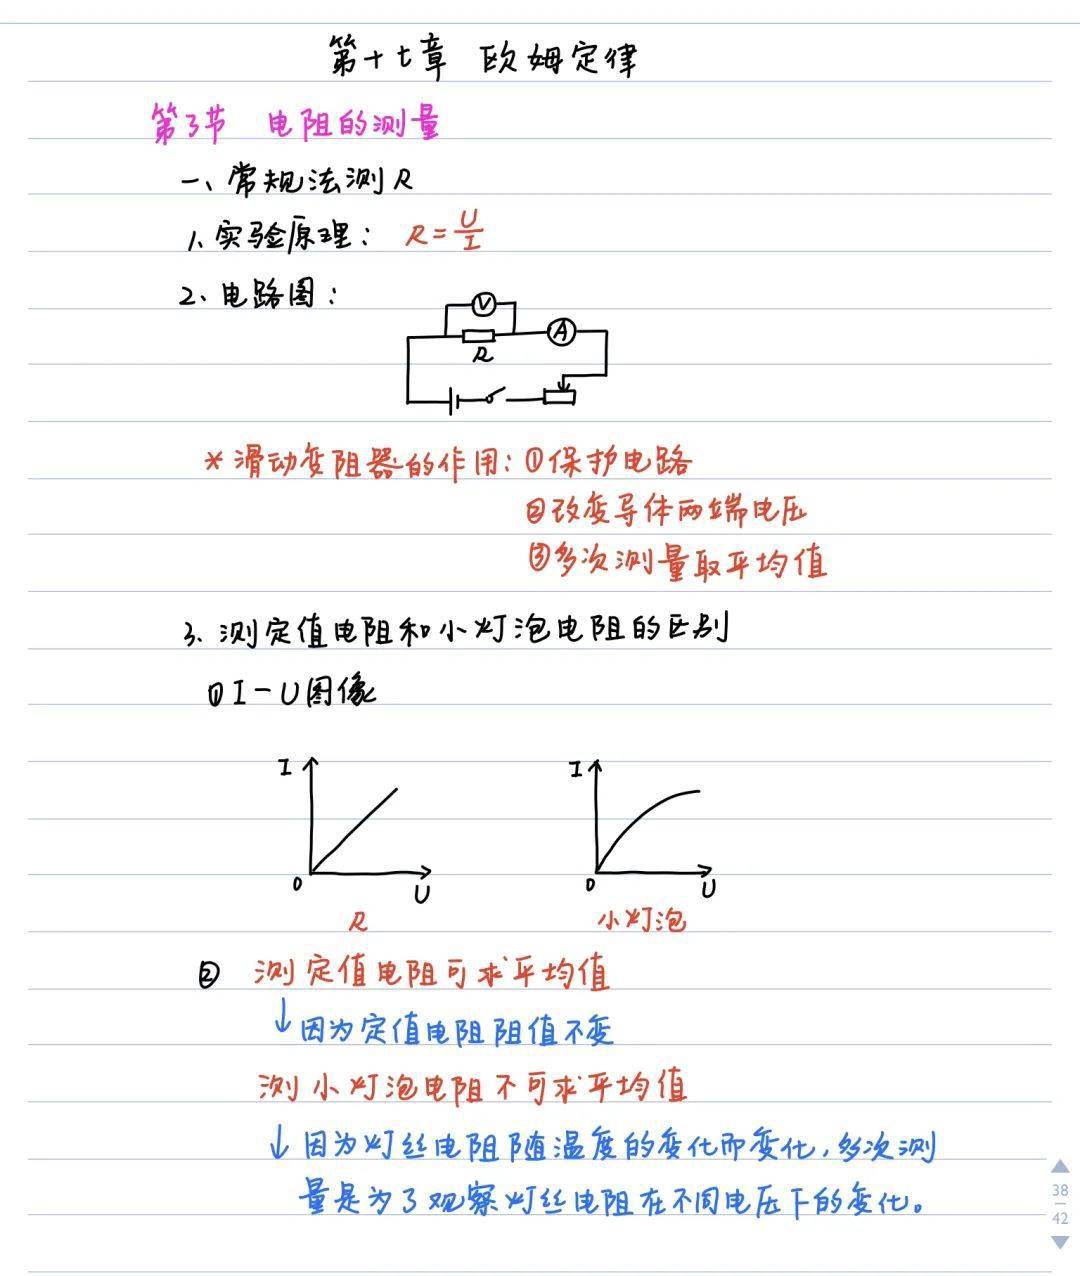 第十七章 欧姆定律
第3节 电阻的测量
一、常规法测R
1、实验原理：R=U/I
2、电路图：
V
A
R
*滑动变阻器的作用：①保护电路
②改变导体两端电压
③多次测量取平均值
3、测定值电阻和小灯泡电阻的区别
①I-U图像
I
I
0
U
0
U
R
小灯泡
② 测定值电阻可求平均值
↓因为定值电阻阻值不变
测小灯泡电阻不可求平均值
↓因为灯丝电阻随温度的变化而变化，多次测
量是为了观察灯丝电阻在不同电压下的变化。
38
42